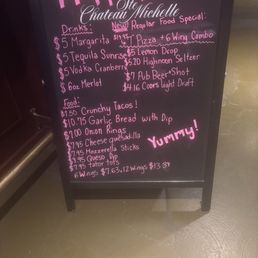 Ste
Chateau Michelle
Drinks:
$5 Margarita
$5 Tequila Sunrise
$5 Vodka Cranberry
$ 6oz Merlot
New! Regular Food Special:
Pizza + 6 Wing Combo
$5 Lemon Drop
$5.20 Highnoon Seltzer
$7 Pub Beer + Shot
$4.16 Coors Light Draft
Food:
$1.50 Crunchy Tacos!
$10.95 Garlic Bread with Dip
$7.00 Onion Rings
$7.95 Cheese quesadilla
$7.95 Mozzerella Sticks
$9.95 Queso Dip
$7.95 tator tots
6 Wings $7.63, 12 Wings $13.89
Yummy!